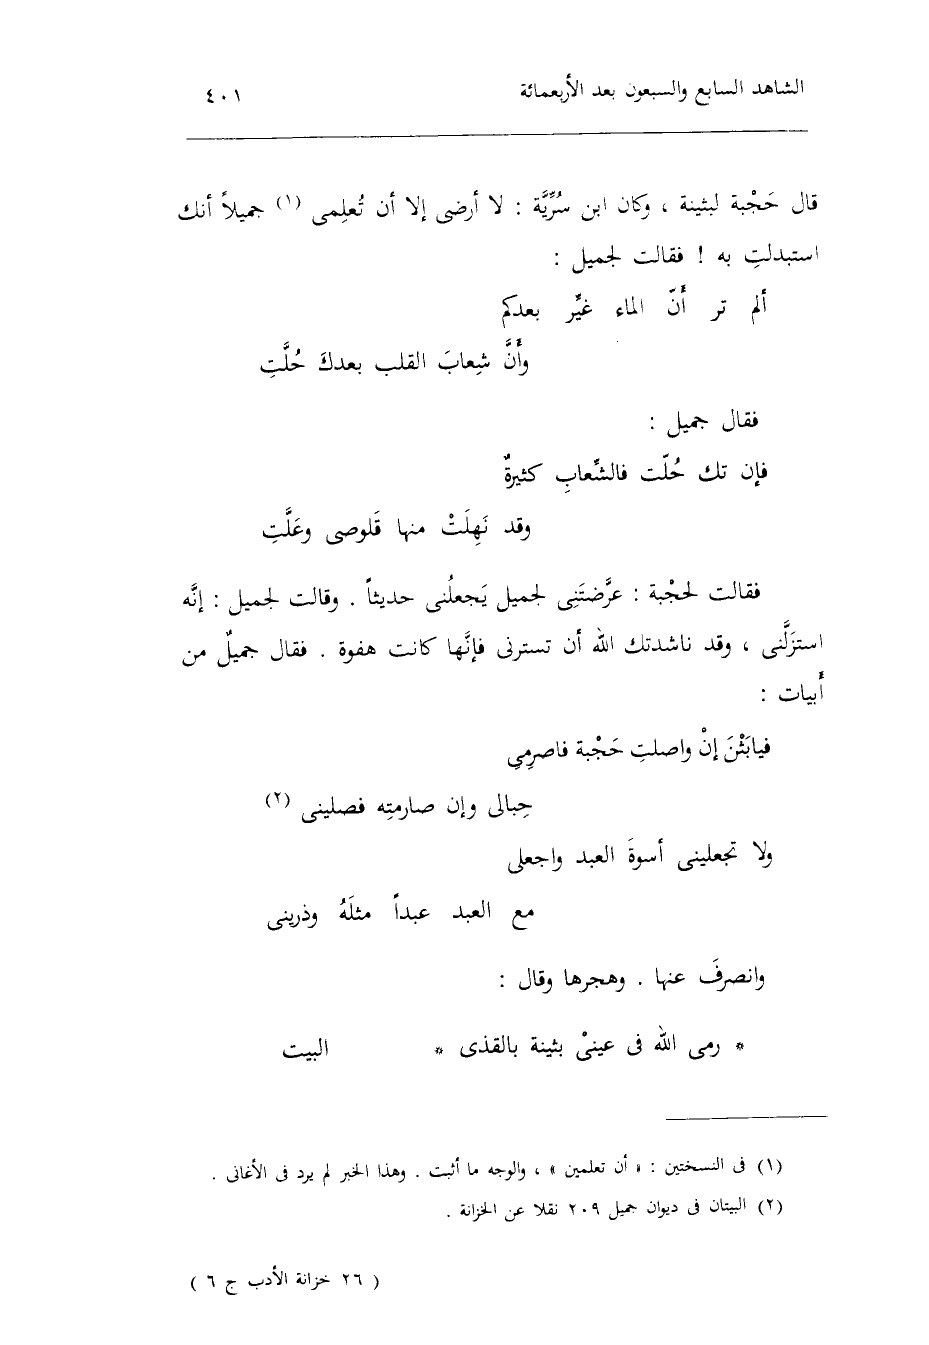 الشاهد السابع والسبعون بعد الأربعمائة ٤٠١
قال حَجْبة لبثينة ، وكان ابن سُرِّيَّة : لا أرضى إلا أن تُعلِمى (١) جميلاً أنك
استبدلتِ به ! فقالت لجميل :
ألم تر أَنّ الماء غيِّر بعدكم
وأَنَّ شِعابَ القلب بعدكَ حُلَّتِ
فقال جميل :
فإن تك حُلّت فالشِّعابِ كثيرةٌ
وقد نَهِلَتْ منها قَلوصى وعَلَّتِ
فقالت لحجْبة : عرَّضتَنِى لجميل يَجعلُنى حديثاً . وقالت لجميل : إنَّه
استزَلَّنى ، وقد ناشدتك الله أن تسترنى فإنَّها كانت هفوة . فقال جميلٌ من
أبيات :
فيابَثْنَ إنْ واصلتِ حَجْبة فاصرِمِي
حِبالى وإن صارمتِه فصلينى (٢)
ولا تجعلينى أسوةَ العبد واجعلى
مع العبد عبداً مثلَهُ وذرينى
وانصرفَ عنها . وهجرها وقال :
* رمى الله فى عينىْ بثينة بالقذى * البيت
(١) فى النسختين : « أن تعلمين » ، والوجه ما أثبت . وهذا الخبر لم يرد فى الأغانى .
(٢) البيتان فى ديوان جميل ٢٠٩ نقلا عن الخزانة .
( ٢٦ خزانة الأدب ج ٦ )